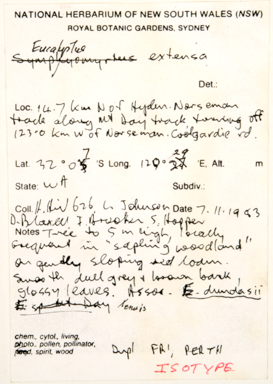 NATIONAL HERBARIUM OF NEW SOUTH WALES (NSW)
ROYAL BOTANIC GARDENS, SYDNEY
Eucalyptus
Symphyomyrtus extensa
Det.:
Loc. 14.7 km N of Hyden-Norseman
track along Mt Day track turning off
123.0 km W of Norseman-Coolgardie rd.
Lat. 32°07'S Long. 120°29'E, Alt. m
State: WA Subdiv.:
Coll. L. Johnson Date 7.11.1983
D. Blaxell I Brooker S. Hopper
Notes Tree to 5 m high, locally
frequent in "sapling woodland"
on gently sloping red loam.
Smooth dull grey & brown bark,
glossy leaves. Assoc. E. dundasii
E.
chem., cytol, living,
photo., pollen, pollinator,
seed, spirit, wood
Dupl FRI, PERTH
ISOTYPE